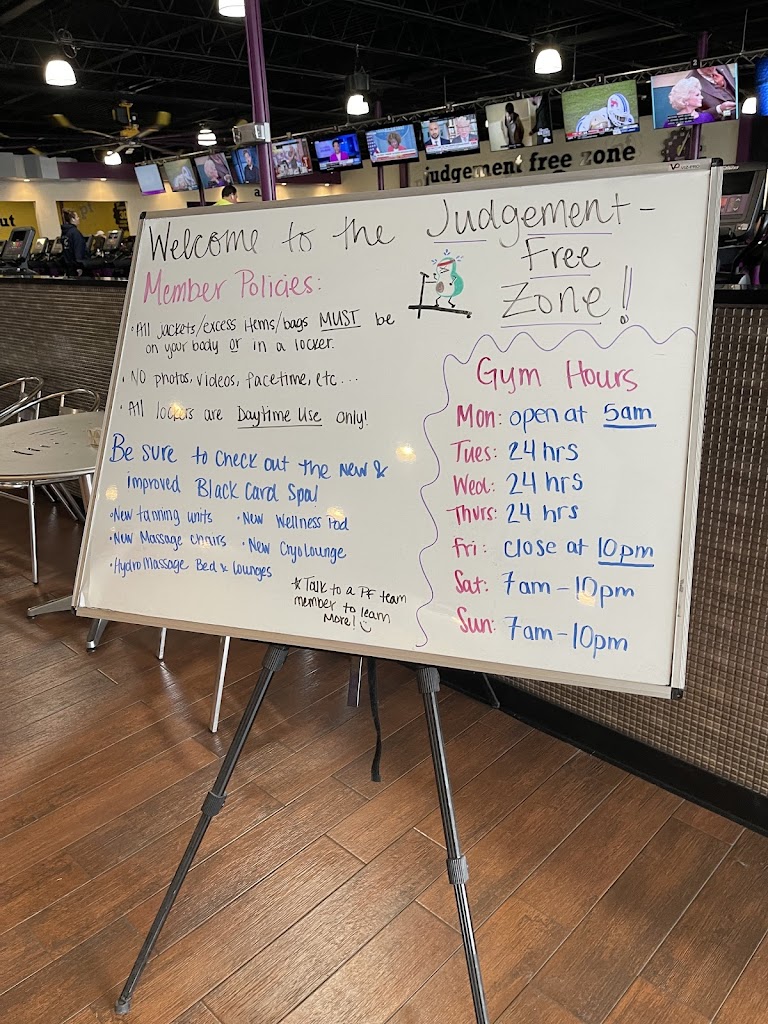 judgement free zone
Welcome to the Judgement-
Free
Zone!!
Member Policies:
• All jackets/excess items/bags MUST be
on your body or in a locker.
• NO photos, videos, facetime, etc...
• All lockers are Daytime Use only!
Be sure to check out the new &
improved Black Card Spa!
• New tanning units • New Wellness Pod
• New Massage chairs • New CryoLounge
• HydroMassage Bed & Lounges
* Talk to a PF team
member to learn
more!
Gym Hours
Mon: open at 5am
Tues: 24 hrs
Wed: 24 hrs
Thurs: 24 hrs
Fri: close at 10pm
Sat: 7am-10pm
Sun: 7am-10pm